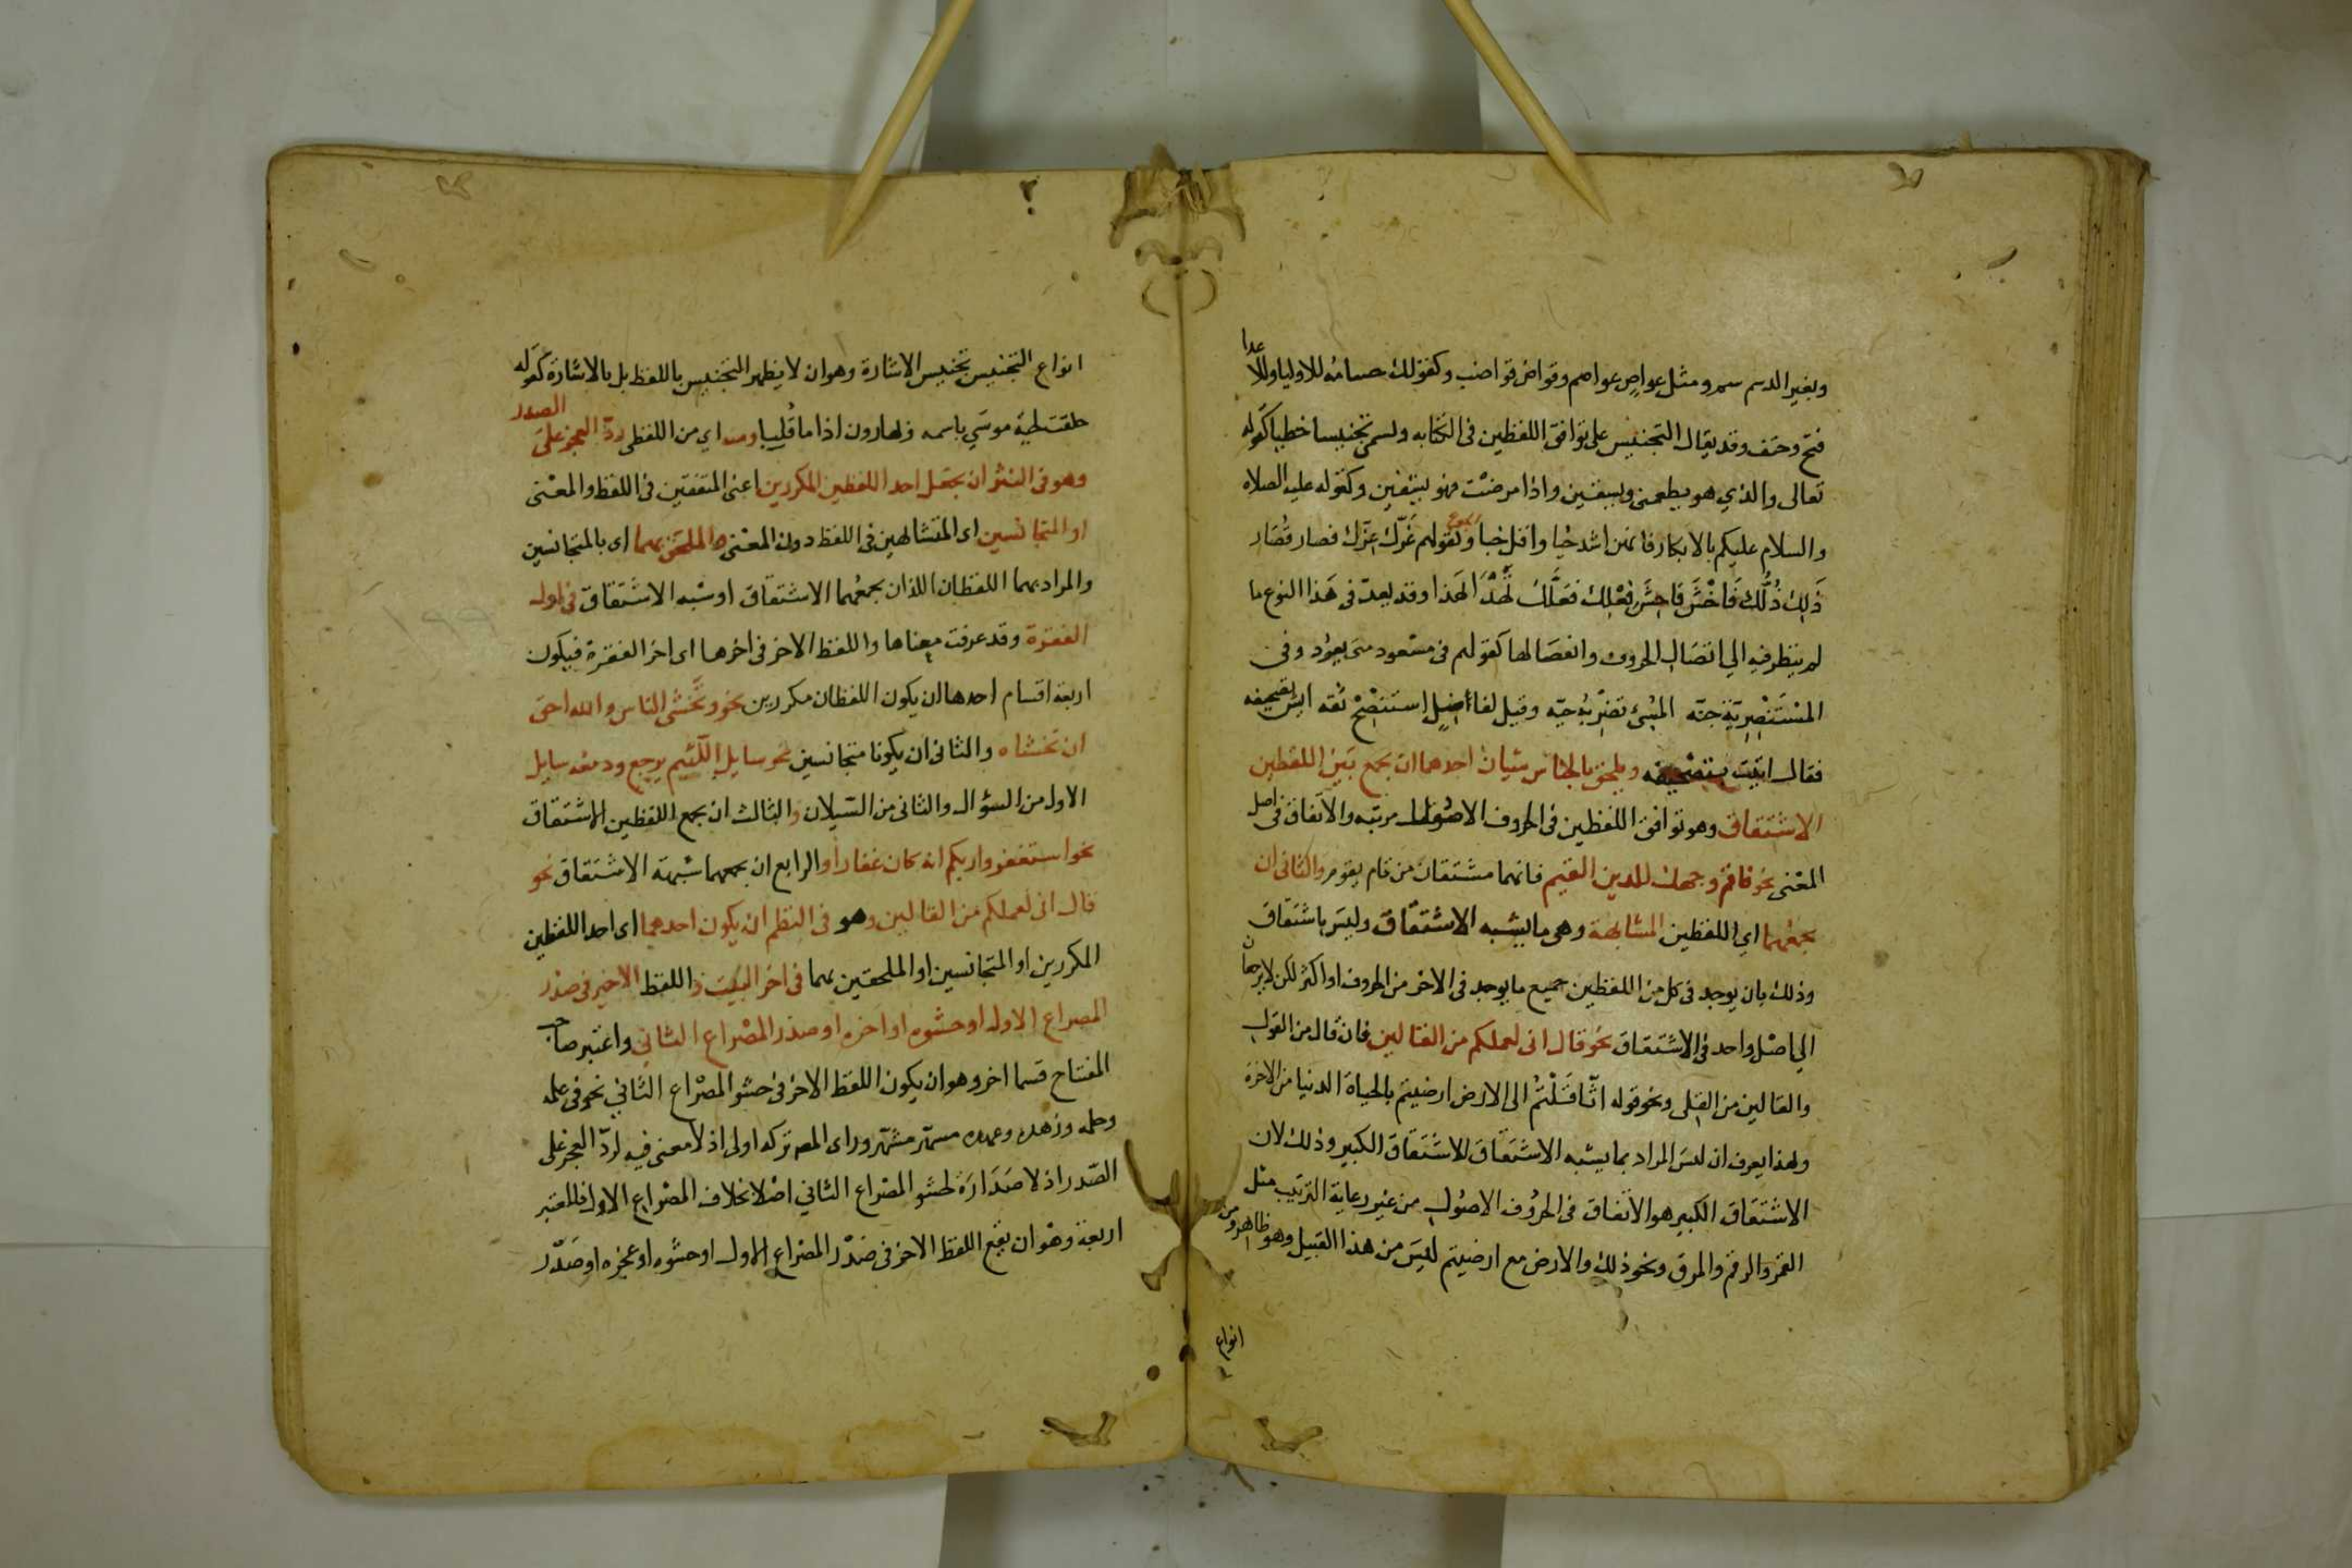 وبغير الدسم سم ومثل عواص عواصم وقواض قواضب وكقولك حسامه للاوليا وللاعدا
فتح وحتف وقد يقال التجنيس على توافق اللفظين فى الكتابه ويسمى تجنيسا خطيا كقوله
تعالى والذي هو يطعمنى ويسقين واذا مرضت فهو يشفين وكقوله عليه الصلاه
والسلام عليكم بالابكار فانهن اشد حبا واقل خبا وكقولهم غَرّك عزّك فصار قصار
ذَلِكَ ذُلَّك فَاخْشَ فَاحِشَ فِعْلِكَ فعَلَّكَ تُهْدَا لهَذا وقد يعدّ فى هَذا النوع ما
لم ينظر فيه الي اتصَال الحروف وانفصَالها كقولهم فى مسْعود متى يعوُد وفى
المسْتَنْصِرِيّة جنّه المسِئ تضرّبه حيّه وقيل لفاضل استنصح ثقه ايش تصحيفه
فقال اتيت بتصحيفه ويلحق بالجناس شيان احدهما ان يجمع بَيْن اللفظين
الاشتقاق وهو توافق اللفظين فى الحروف الاصُول مرتبه والاتفاق فى اصل
المعْنى نحو فاقم وجهك للدين القيم فانهما مشتقان من قام يقوم والثانى ان
يجمعهما اي اللفظين المشابهة وهى ما يشبه الاشتقاق وليسَ باشتقاق
وذلك بان يوجد فى كل من اللفظين جميع ما يوجد فى الاخر من الحروف او اكثر لكن لا يرجعان
الي اصْل واحد فى الاشتقاق نحو قال انى لعملكم من القالين فان قال من القول
والقالين من القلى ونحو قوله اثّاقَلْتُم الى الارض ارضيتم بالحياة الدنيا من الاخرة
وبهذا يعرف ان ليسَ المراد بما يشبه الاشتقاق الاشتقاق الكبير وذلك لان
الاشتقاق الكبير هو الاتفاق فى الحرُوف الاصُول من غير رعاية الترتيب مثل
القمر والرقم والمرق ونحو ذلك والارض مع ارضيتم ليسَ من هذا القبيل وهو ظاهر ومن
انواع
انواع التجنيس تجنيس الاشارة وهو ان لا يظهر التجنيس باللفظ بل بالاشارة كقوله
حلقت لحية موسَي باسمه وبهارون اذا ما قُلِبا ومنه اي من اللفظى ردّ العجز علىَ الصدر
وهو فى النثر ان يجعل احد اللفظين المكررين اعنى المتفقين فى اللفظ والمعْنى
او المتجانسين اى المتشابهين فى اللفظ دون المعْنى او الملحقين بهما اى بالمتجانسين
والمراد بهما اللفظان اللذان يجمعُهما الاشتقاق او شبه الاشتقاق فى اول
الفقرة وقد عرفت معناها واللفظ الاخر فى اخرها اى اخر الفقرة فيكون
اربعة اقسام احدها ان يكون اللفظان مكررين نحو وتَخْشى الناس والله احق
ان تخشاه والثانى ان يكونا متجانسين نحو سايل اللّئيم يرجع ودمعه سايل
الاول من السؤال والثانى من السّيلان والثالث ان يجمع اللفظين الاشتقاق
نحو استغفروا ربكم انه كان غفارا والرابع ان يجمعهما شبهة الاشتقاق نحو
قال انى لعملكم من القالين وهو فى النظم ان يكون احدهما اى احد اللفظين
المكررين او المتجانسين او الملحقين بهما فى اخر البيت واللفظ الاخير فى صدْر
المصراع الاول او حشوه او اخره او صدر المصْراع الثاني واعتبر صاحب
المفتاح قسما اخر وهو ان يكون اللفظ الاخر فى حشو المصْراع الثاني نحو فى علمه
وحلمه وزهده وعهده مشتهر مشتهر وراى المصـ تركه اولى اذ لا معنى فيه لردّ العجز على
الصّدر اذ لا صَدَارَة لحشو المصْراع الثاني اصْلا بخلاف المصْراع الاول فالمعتبر
اربعة وهْو ان يقع اللفظ الاخر فى صَدْر المصْراع الاول او حشوه او عجزه او صَدْر